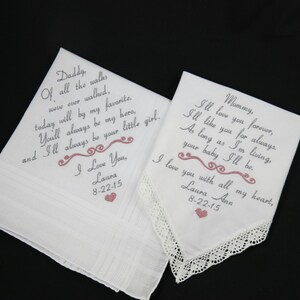 Daddy,
Of all the walks
we've ever walked,
today will by my favorite.
You'll always be my hero,
and I'll always be your little girl.
I Love You,
Laura
8-22-15
Mommy,
I'll love you forever,
I'll like you for always,
As long as I'm living,
your baby I'll be.
I love you with all my heart,
Laura Ann
8-22-15